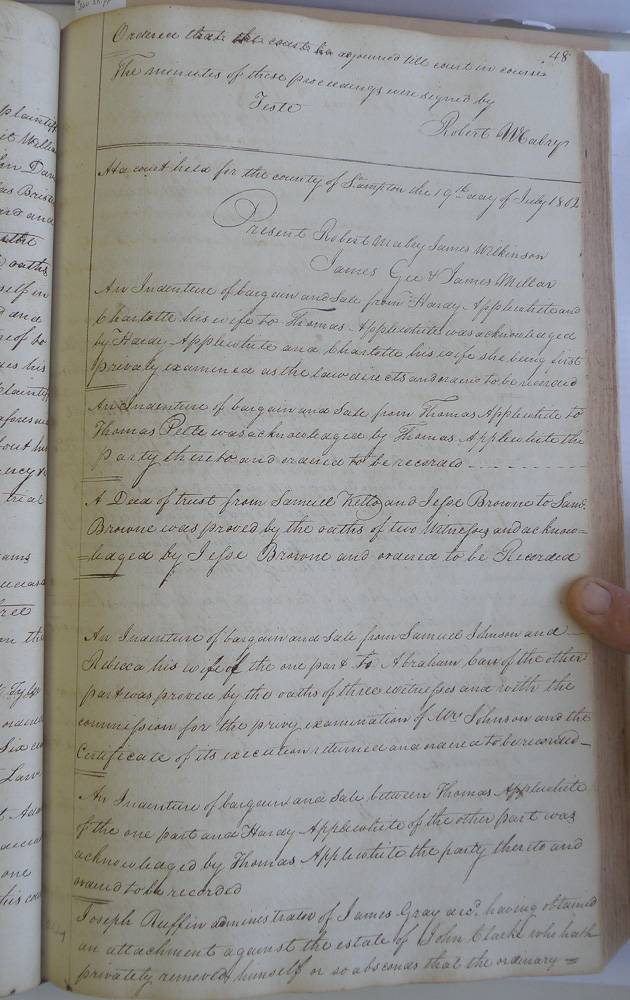 48
Ordered that the court be adjourned till court in course
The minutes of these proceedings were signed by
Teste
Robert Mabry
At a court held for the county of Southampton the 19th day of July 1802
Present Robert Mabry James Wilkinson
James Gee & James Millar
An Indenture of bargain and Sale from Hardy Applewhite and
Charlotte his wife to Thomas Applewhite was acknowledged
by Hardy Applewhite and Charlotte his wife she being first
privately examined as the law directs and ordered to be recorded
An Indenture of bargain and Sale from Thomas Applewhite to
Thomas Pette was acknowledged by Thomas Applewhite the
party thereto and ordered to be recorded
A Deed of trust from Samuel Kello and Jesse Browne to Saml.
Browne was proved by the oaths of two Witnesses and acknow=
=ledged by Jesse Browne and ordered to be Recorded
An Indenture of bargain and Sale from Samuel Johnson and
Rebecca his wife of the one part to Abraham Carr of the other
part was proved by the oaths of three witnesses and with the
commission for the privy examination of Mrs Johnson and the
Certificate of its execution returned and ordered to be recorded
An Indenture of bargain and Sale between Thomas Applewhite
of the one part and Hardy Applewhite of the other part was
acknowledged by Thomas Applewhite the party thereto and
ordered to be recorded
Joseph Ruffin administrator of James Gray decd. having obtained
an attachment against the estate of John Clarke who hath
privately removed himself or so absconds that the ordinary =